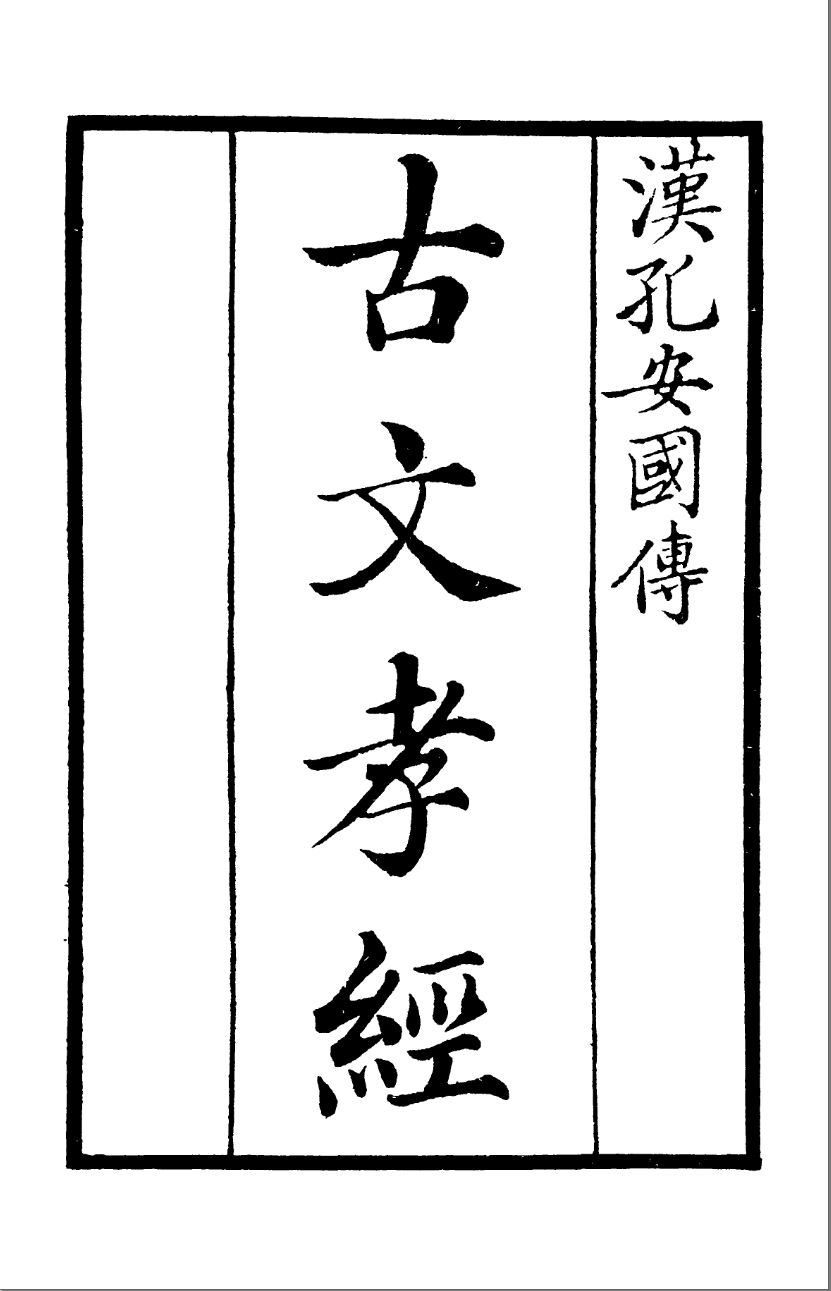 漢孔安國傳
古文孝經